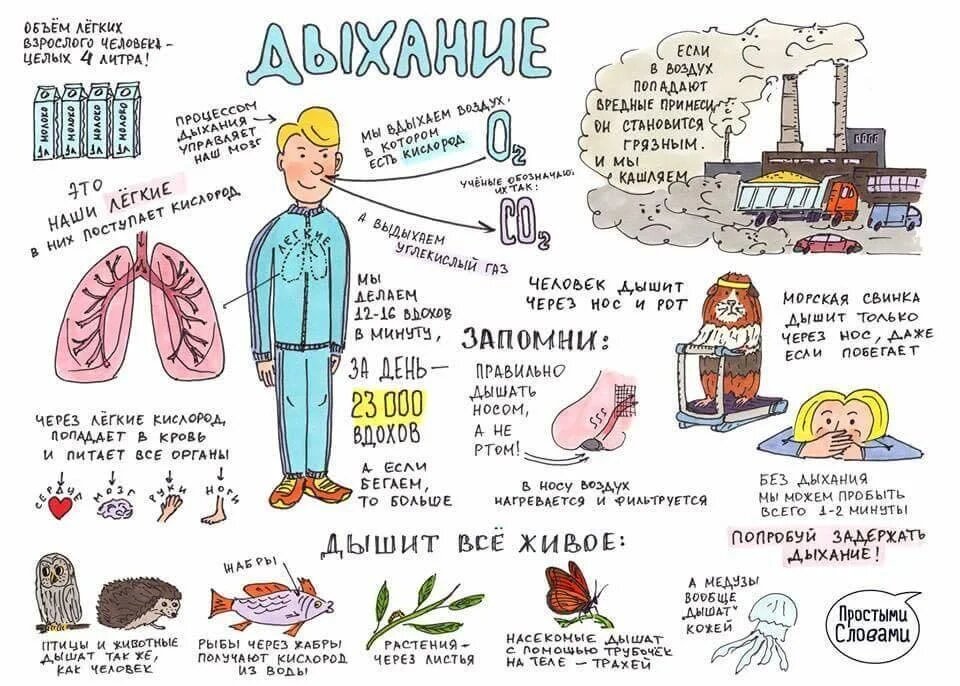 ОБЪЁМ ЛЁГКИХ
ВЗРОСЛОГО ЧЕЛОВЕКА -
ЦЕЛЫХ 4 ЛИТРА!
МОЛОКО
1Л
МОЛОКО
1Л
МОЛОКО
1Л
МОЛОКО
1Л
ДЫХАНИЕ
ПРОЦЕССОМ
ДЫХАНИЯ
УПРАВЛЯЕТ
НАШ МОЗГ
МЫ ВДЫХАЕМ ВОЗДУХ,
В КОТОРОМ
ЕСТЬ КИСЛОРОД
O2
УЧЁНЫЕ ОБОЗНАЧАЮТ
ИХ ТАК:
CO2
А ВЫДЫХАЕМ
УГЛЕКИСЛЫЙ ГАЗ
ЕСЛИ
В ВОЗДУХ
ПОПАДАЮТ
ВРЕДНЫЕ ПРИМЕСИ,
ОН СТАНОВИТСЯ
ГРЯЗНЫМ.
И МЫ
КАШЛЯЕМ
ЭТО
НАШИ ЛЁГКИЕ
В НИХ ПОСТУПАЕТ КИСЛОРОД
ЛЕГКИЕ
МЫ
ДЕЛАЕМ
12-16 ВДОХОВ
В МИНУТУ,
ЗА ДЕНЬ —
23 000
ВДОХОВ
А ЕСЛИ
БЕГАЕМ,
ТО БОЛЬШЕ
ЧЕЛОВЕК ДЫШИТ
ЧЕРЕЗ НОС И РОТ
МОРСКАЯ СВИНКА
ДЫШИТ ТОЛЬКО
ЧЕРЕЗ НОС, ДАЖЕ
ЕСЛИ ПОБЕГАЕТ
ЗАПОМНИ:
ПРАВИЛЬНО
ДЫШАТЬ
НОСОМ,
А НЕ
РТОМ!
В НОСУ ВОЗДУХ
НАГРЕВАЕТСЯ И ФИЛЬТРУЕТСЯ
ЧЕРЕЗ ЛЁГКИЕ КИСЛОРОД
ПОПАДАЕТ В КРОВЬ
И ПИТАЕТ ВСЕ ОРГАНЫ
СЕРДЦЕ
МОЗГ
РУКИ
НОГИ
БЕЗ ДЫХАНИЯ
МЫ МОЖЕМ ПРОБЫТЬ
ВСЕГО 1-2 МИНУТЫ
ПОПРОБУЙ ЗАДЕРЖАТЬ
ДЫХАНИЕ!
ДЫШИТ ВСЁ ЖИВОЕ:
ПТИЦЫ И ЖИВОТНЫЕ
ДЫШАТ ТАК ЖЕ,
КАК ЧЕЛОВЕК
ЖАБРЫ
РЫБЫ ЧЕРЕЗ ЖАБРЫ
ПОЛУЧАЮТ КИСЛОРОД
ИЗ ВОДЫ
РАСТЕНИЯ -
ЧЕРЕЗ ЛИСТЬЯ
НАСЕКОМЫЕ ДЫШАТ
С ПОМОЩЬЮ ТРУБОЧЕК
НА ТЕЛЕ — ТРАХЕЙ
А МЕДУЗЫ
ВООБЩЕ
ДЫШАТ
КОЖЕЙ
Простыми
Словами